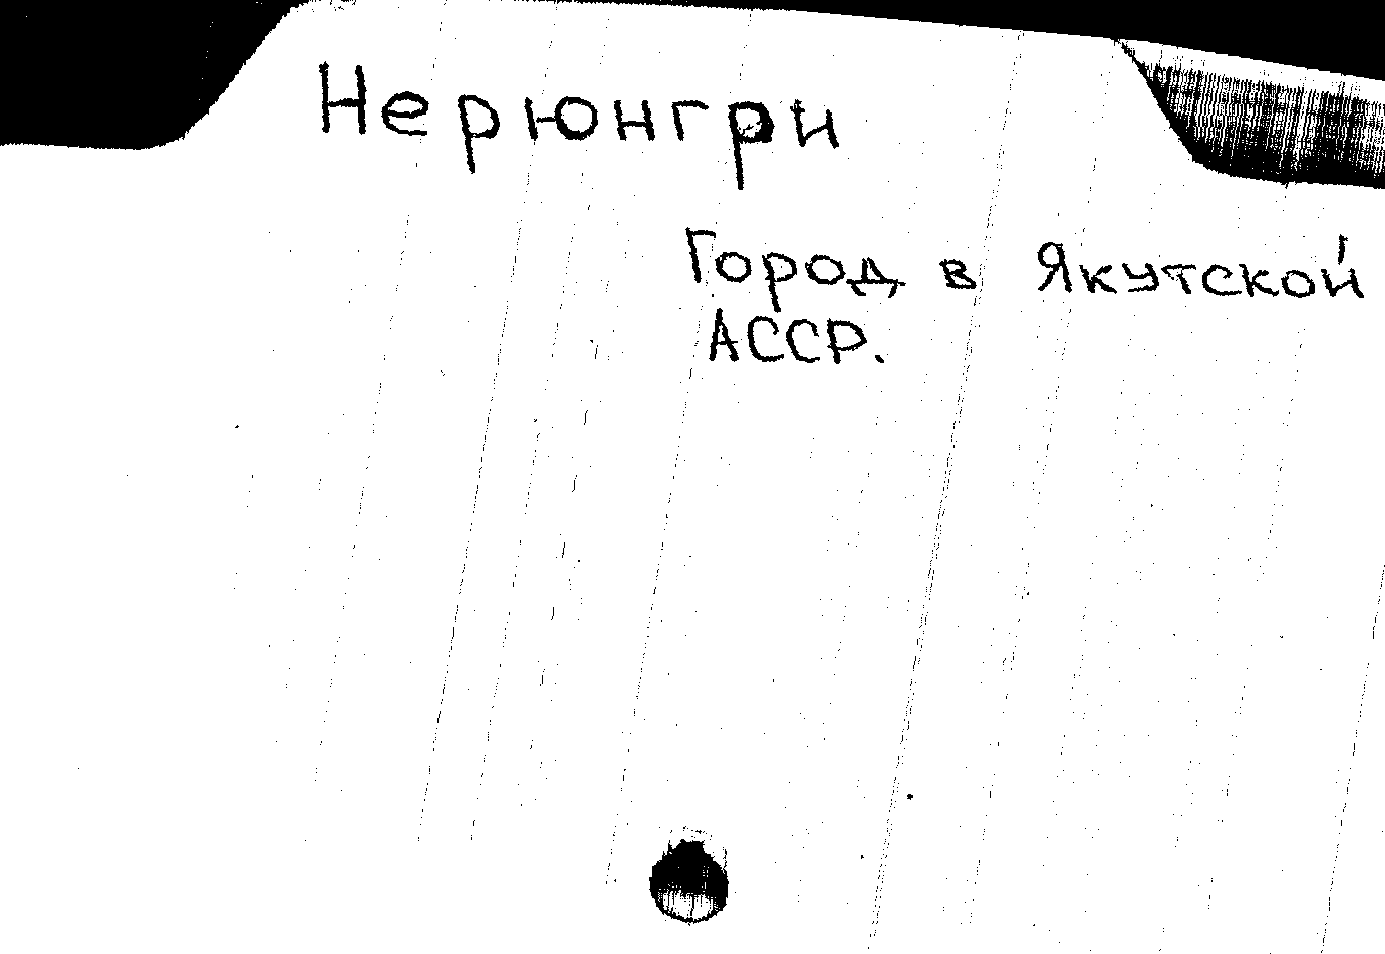 Нерюнгри
Город в Якутской
АССР.